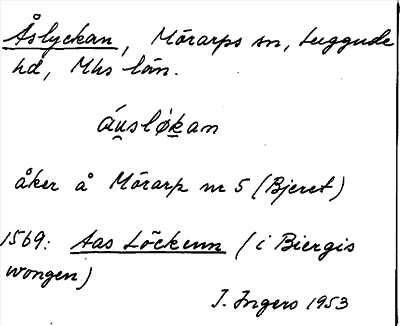 Åslyckan, Mörarps sn, Luggude
hd, Mhs län.
áu̯sló̱kan
åker å Mörarp nr 5 (Bjeret)
1569: Aas Löckenn (i Biergis
wongen)
I. Ingers 1953